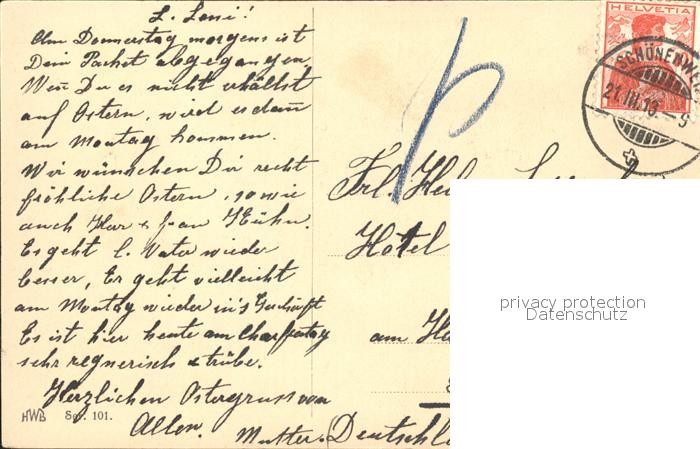 L. Leni!
Am Donnerstag morgens ist
Dein Packet abgegangen,
Wen Du es nicht erhällst
auf Ostern, wird es dan
am Montag kommen.
Wir wünschen Dir recht
fröhliche Ostern, sowie
auch Herr & frau Kühn.
Es geht l. Vater wieder
besser, Er geht vielleicht
am Montag wieder in's Geschäft
Es ist hier heute am Charfreitag
sehr regnerisch & trübe.
Herzlichen Ostergruss von
Allen. Mutter.
HWB Ser. 101.
HELVETIA
SCHÖNENWER
21.III.13.-9
Frl.
Hôtel
am
Deutschl
privacy protection
Datenschutz